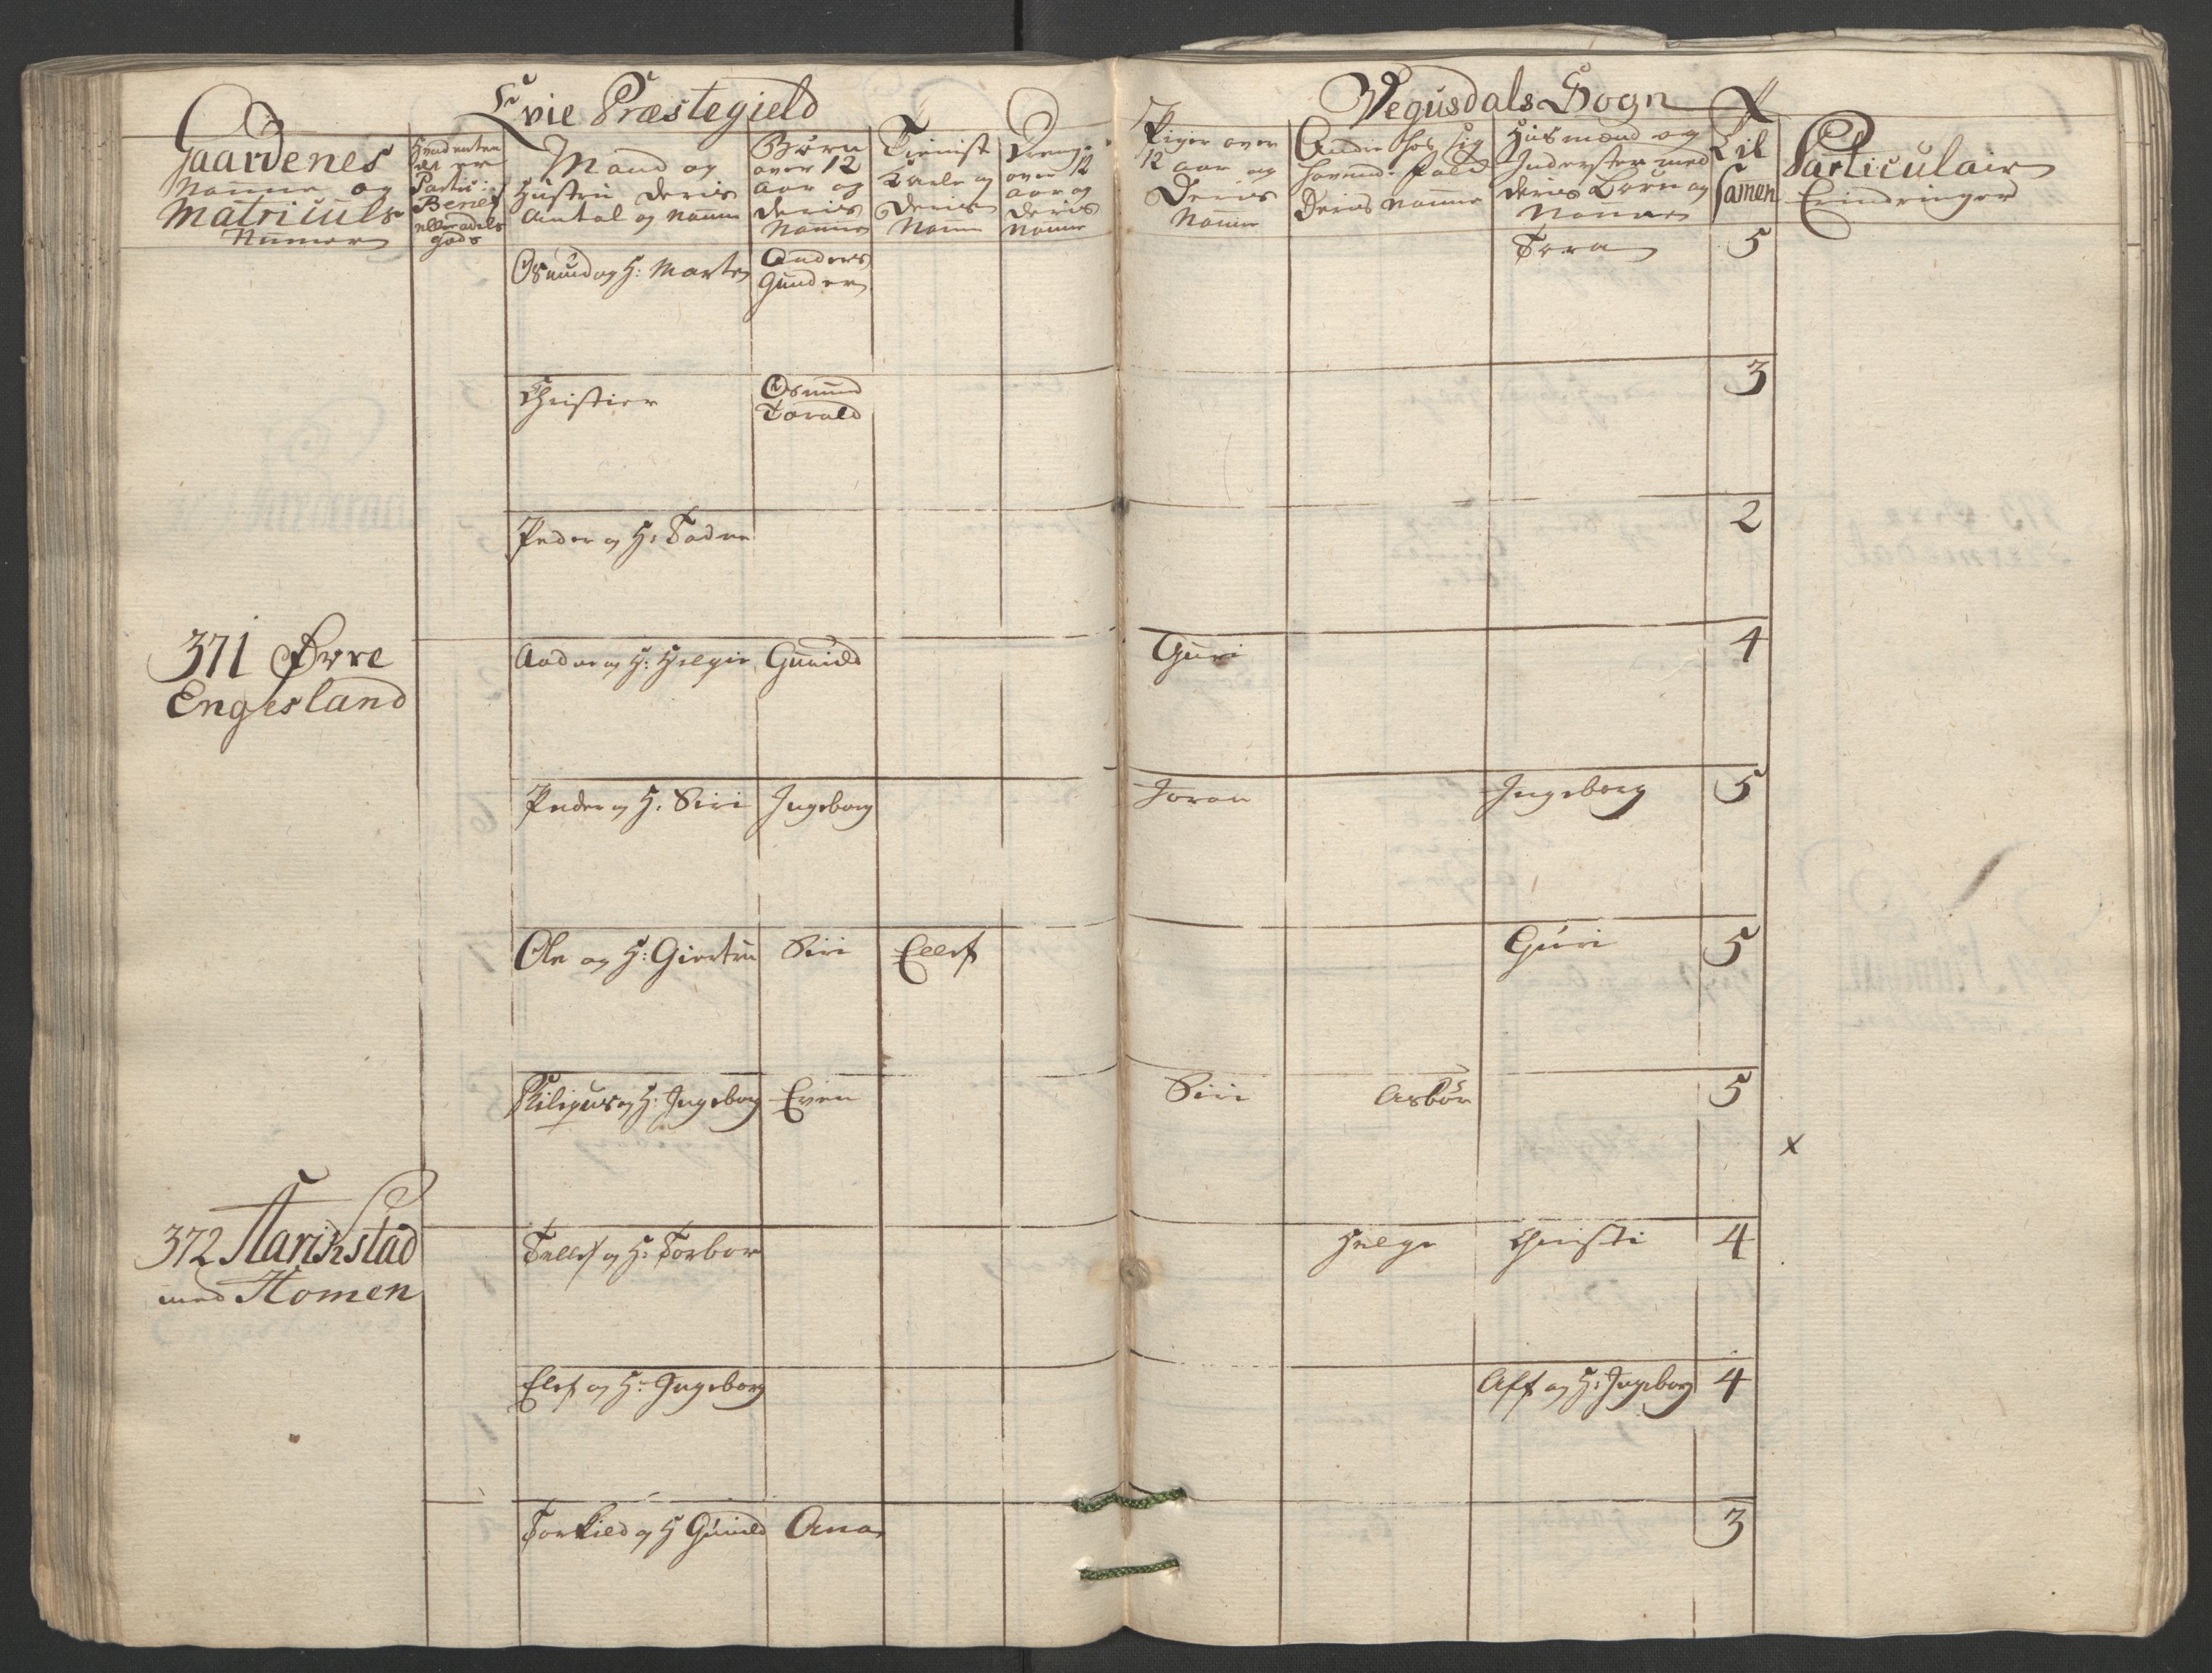 Evie Præstegield
Vegusdals Sogn
Gaardenes
Naune og
Matriculs
Numer
Hvad enten
det er
Partic:
Benef
eller adels
gods
Mand og
Hustru deris
Antal og Naune
Børn
over 12
aar og
deris
Naune
Tienist
Karle og
Deris
Naune
Drenge
over 12
aar og
deris
Naune
Piger over
12 aar og
Deris
Naune
Andre hos sig
havend: folk
Deris Naune
Husmænd og
Inderster med
deris Børn og
Naune
Til
Samen
Particulair
Erindringer
Osmund og H: Marte
Anders
Gunder
Tora
5
Christier
Osmund
Torald
3
Peder og H: Tadne
2
371 Øvre
Engesland
Aadne og H: Helgie
Gunild
Guri
4
Peder og H: Siri
Ingeborg
Joran
Ingeborg
5
Ole og H: Giertru
Siri
Ellef
Guri
5
Philipus og H: Ingeborg
Even
Siri
Asbør
5
x
372 Harikstad
med Homen
Tellef og H: Torbor
Helge
Christi
4
Elef og H: Ingeborg
Aff og H: Ingeborg
4
Torkield og H Gunild
Anna
3